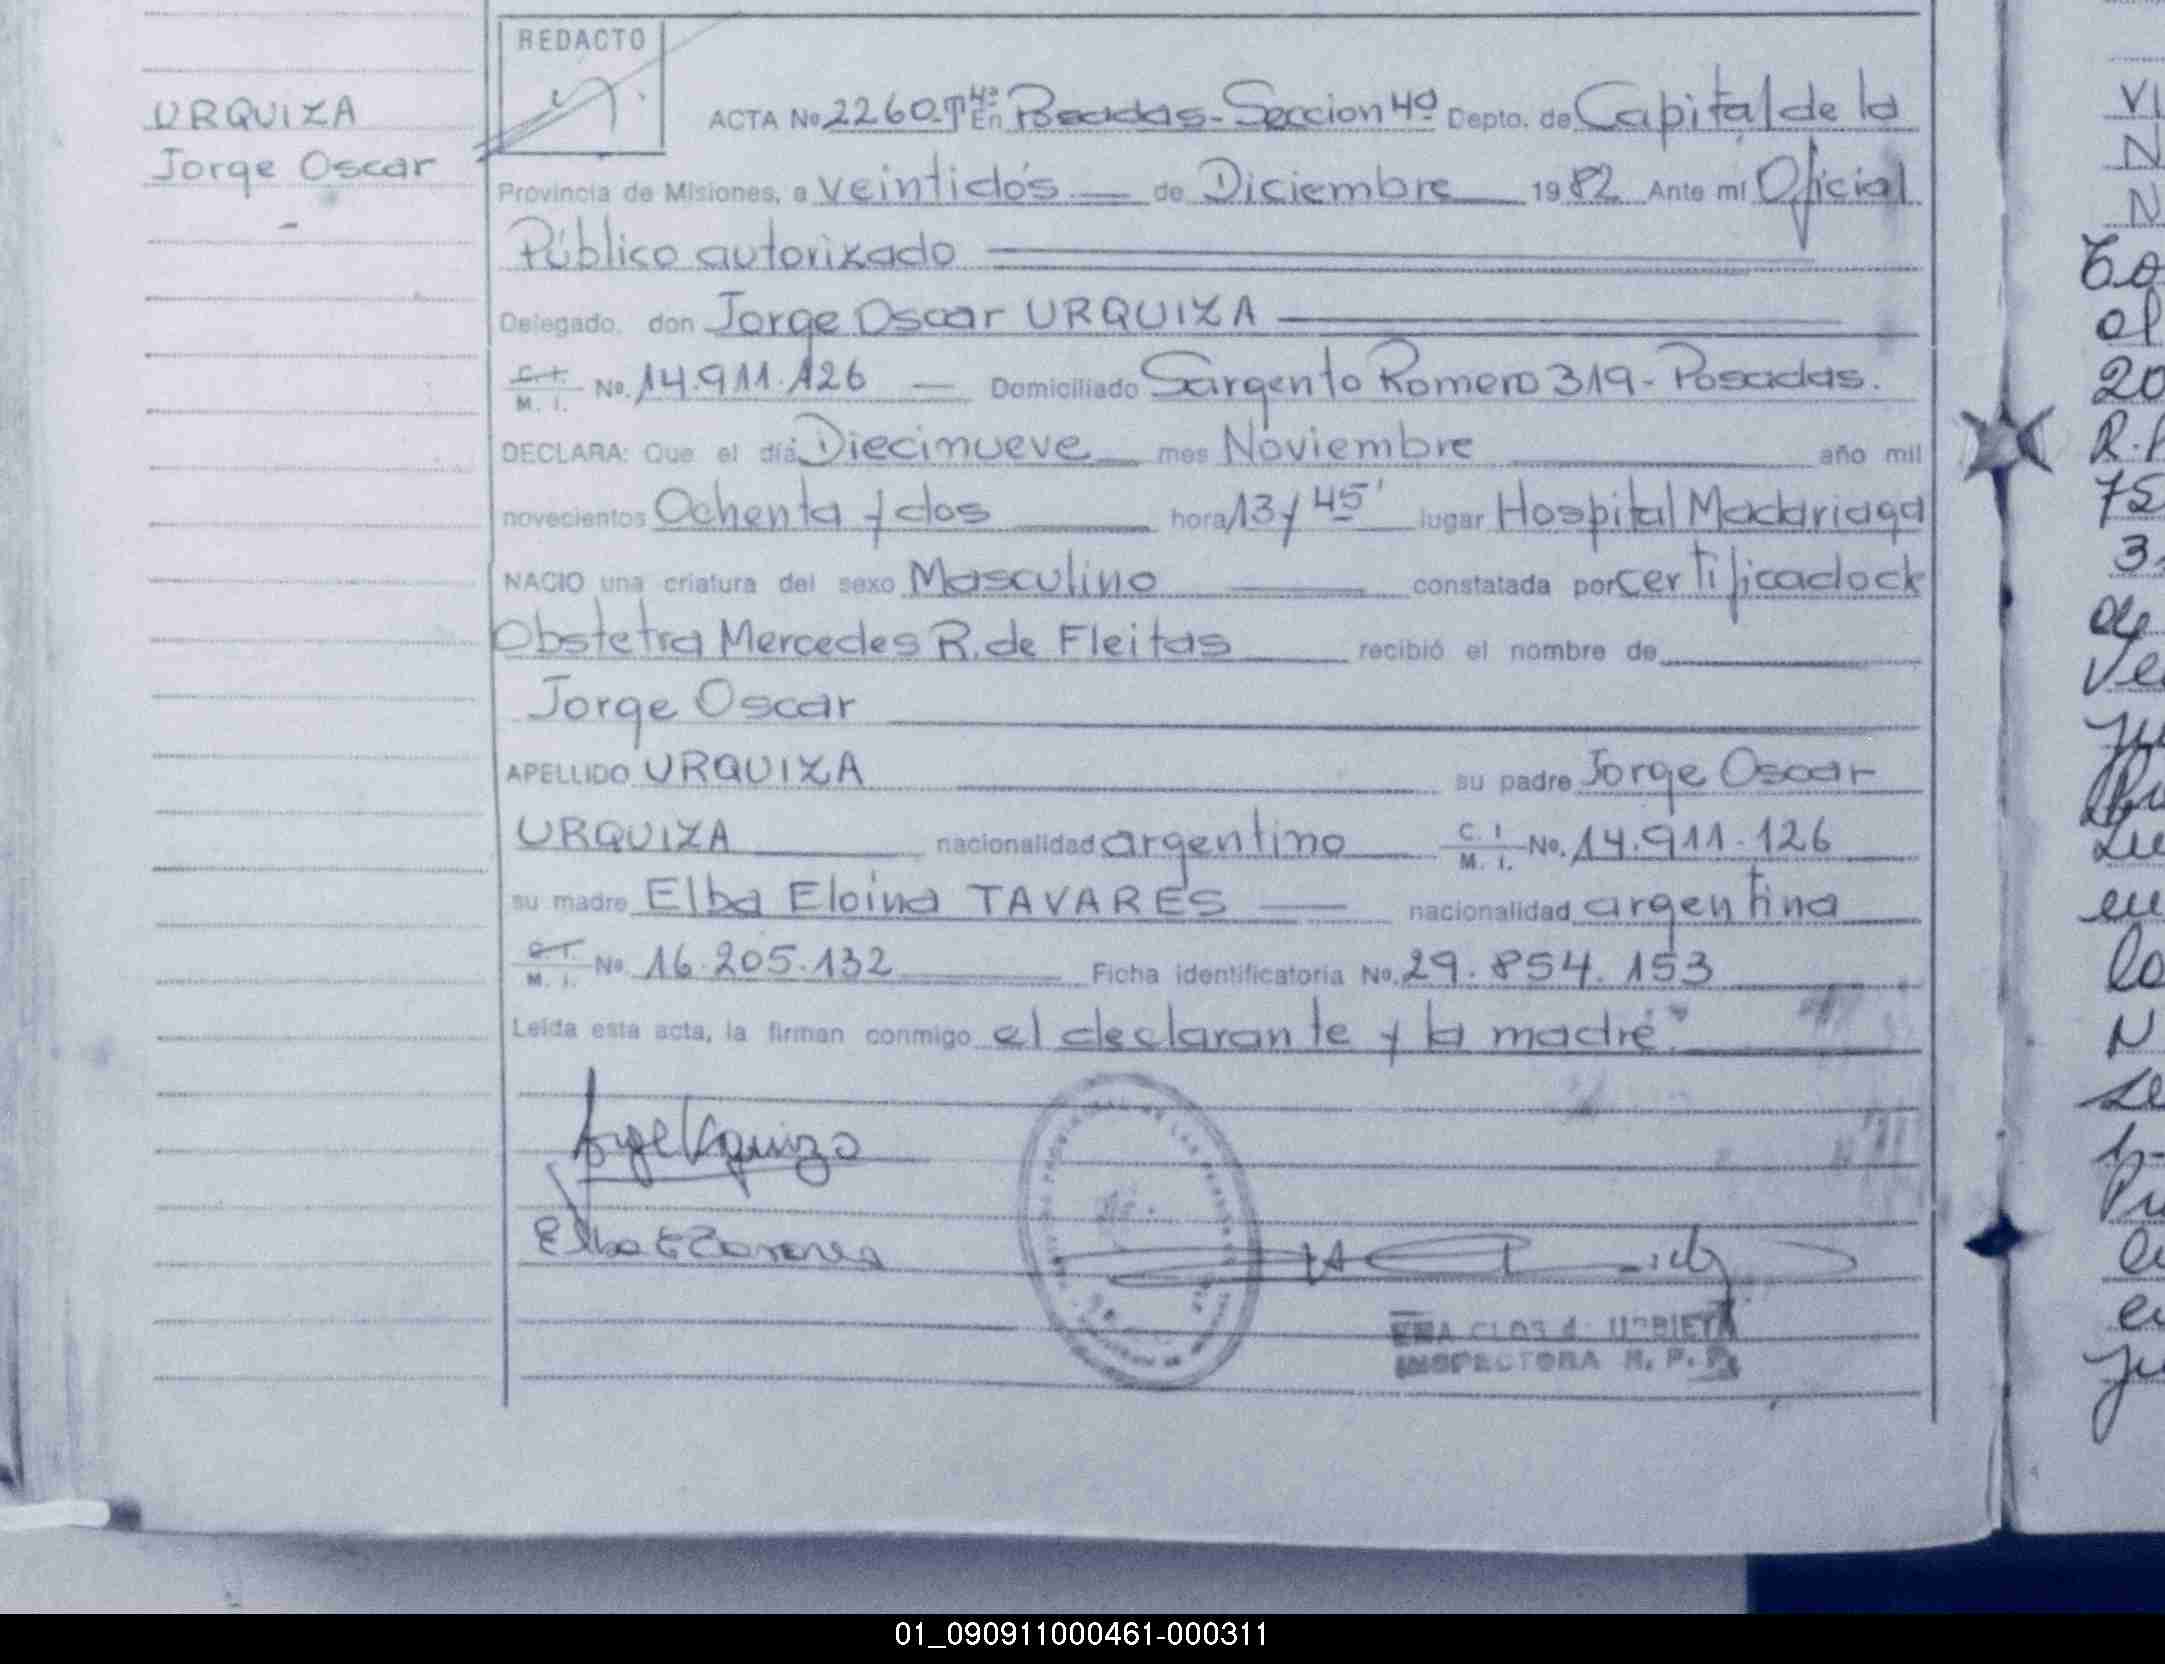 REDACTO
URQUIZA
Jorge Oscar
ACTA No 2260.Tº4º En Posadas-Seccion 4º Depto. de Capital de la
Provincia de Misiones, a veintidós de Diciembre 1982 Ante mí Oficial
Público autorizado
Delegado, don Jorge Oscar URQUIZA
C.I. M. I. No. 14.911.126 Domiciliado Sargento Romero 319-Posadas.
DECLARA: Que el día Diecinueve mes Noviembre año mil
novecientos Ochenta y dos hora 13 y 45' lugar Hospital Madariaga
NACIO una criatura del sexo Masculino constatada por certificado de
Obstetra Mercedes R. de Fleitas recibió el nombre de
Jorge Oscar
APELLIDO URQUIZA su padre Jorge Oscar
URQUIZA nacionalidad argentino C. I M. I. No. 14.911.126
su madre Elba Eloina TAVARES nacionalidad argentina
C.I. M. I. No. 16.205.132 Ficha identificatoria No. 29.854.153
Leída esta acta, la firman conmigo el declarante y la madre.
Jorge Urquiza
Elba E Tavares
INSPECTORA R. P. P.
01_090911000461-000311